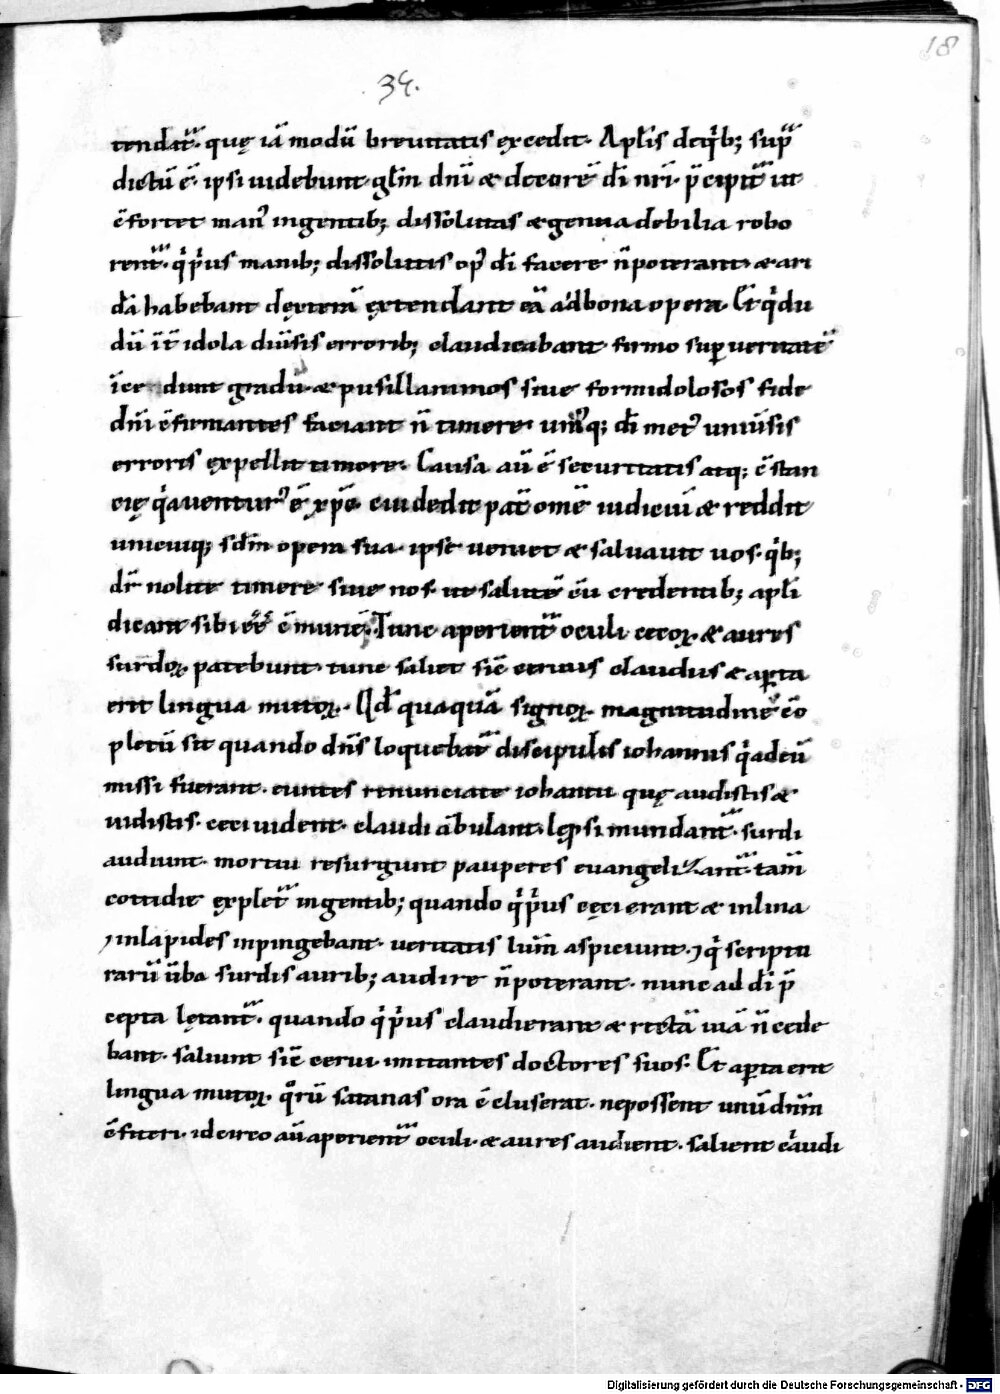 18
34.
tendit᷑. quę iā modū breuitatis excedit. Apłis deq̇b; sup᷑
dictū ē. ipsi uidebunt głm dn̄i & decorē dī nr̄i. p̄cipit᷑ ut
ēfortet man᷒ ingentib; dissolutas & genua debilia robo
rent᷑. q̇ p̓us manib; dissolutis op᷒ dī facere n̄ poterant. & ari
dā habebant dexterā extendant eā ad bona opera. Et q̇ du
dū īt̄ idola diūsis errorib; claudicabant firmo sup ueritatē
īcedunt gradū & pusillanimos siue formidolosos fide
dn̄i ēfirmantes faciant n̄ timere. dī met᷒ uniūsis
erroris expellit timorē. Causa aū ē securitatis atq; ēstan
cię q̇a uentur᷒ ē xp̄c. cui dedit pat̄ omē iudiciū & reddit
unicuiq; sdm opera sua. ipse ueniet & saluauit uos. q̇b;
dr̄ nolite timere siue nos. ut salutē cū credentib; apłi
dicant sibi eē ēmunē. Tunc aperient᷑ oculi cecoꝝ. & aures
surdoꝝ patebunt. tunc saliet sic̄ ceruus claudus & apta
erit lingua mutoꝝ. Qd̄ quaquā signoꝝ magnitudinē ēō
pletū sit quando dn̄s loquebat᷑ discipulis iohannis q̇ ad eū
missi fuerant. euntes renunciate iohanni quę audistis &
uidistis. ceci uident. claudi ābulant. lepsi mundant᷑. surdi
audiunt. mortui resurgunt pauperes euangelizant᷑. tam̄
cottidie explet᷑ ingentib; quando q̇ p̓us cęci erant & inlina
⁊ inlapides inpingebant. ueritatis lum̄ aspiciunt. ⁊ q̇ scriptu
rarū ūba surdis aurib; audire n̄ poterant. nunc ad dī p̄
cepta lętant᷑. quando q̇ p̓us claudi erant & rectā uiā n̄ cede
bant. saliunt sic̄ cerui imitantes doctores suos. Et apta erit
lingua mutoꝝ. q̊rū satanas ora ēcluserat. ne possent unū dn̄m
ēfiteri. idcirco aū aperient᷑ oculi. & aures audient. salient claudi
Digitalisierung gefördert durch die Deutsche Forschungsgemeinschaft - DFG